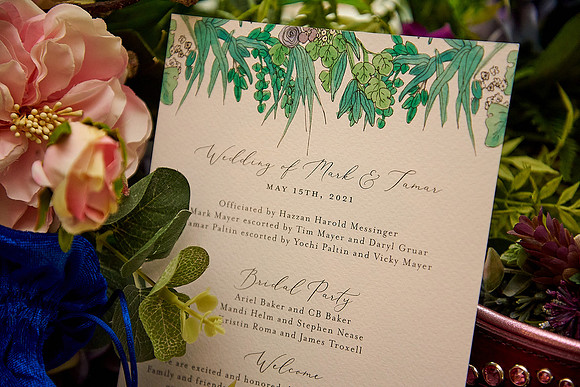 Wedding of Mark & Tamar
MAY 15TH, 2021
Officiated by Hazzan Harold Messinger
Mark Mayer escorted by Tim Mayer and Daryl Gruar
Paltin escorted by Yochi Paltin and Vicky Mayer
Bridal Party
Ariel Baker and GB Baker
Mandi Helm and Stephen Nease
Kristin Roma and James Troxell
Welcome
are excited and honored
Family and friends